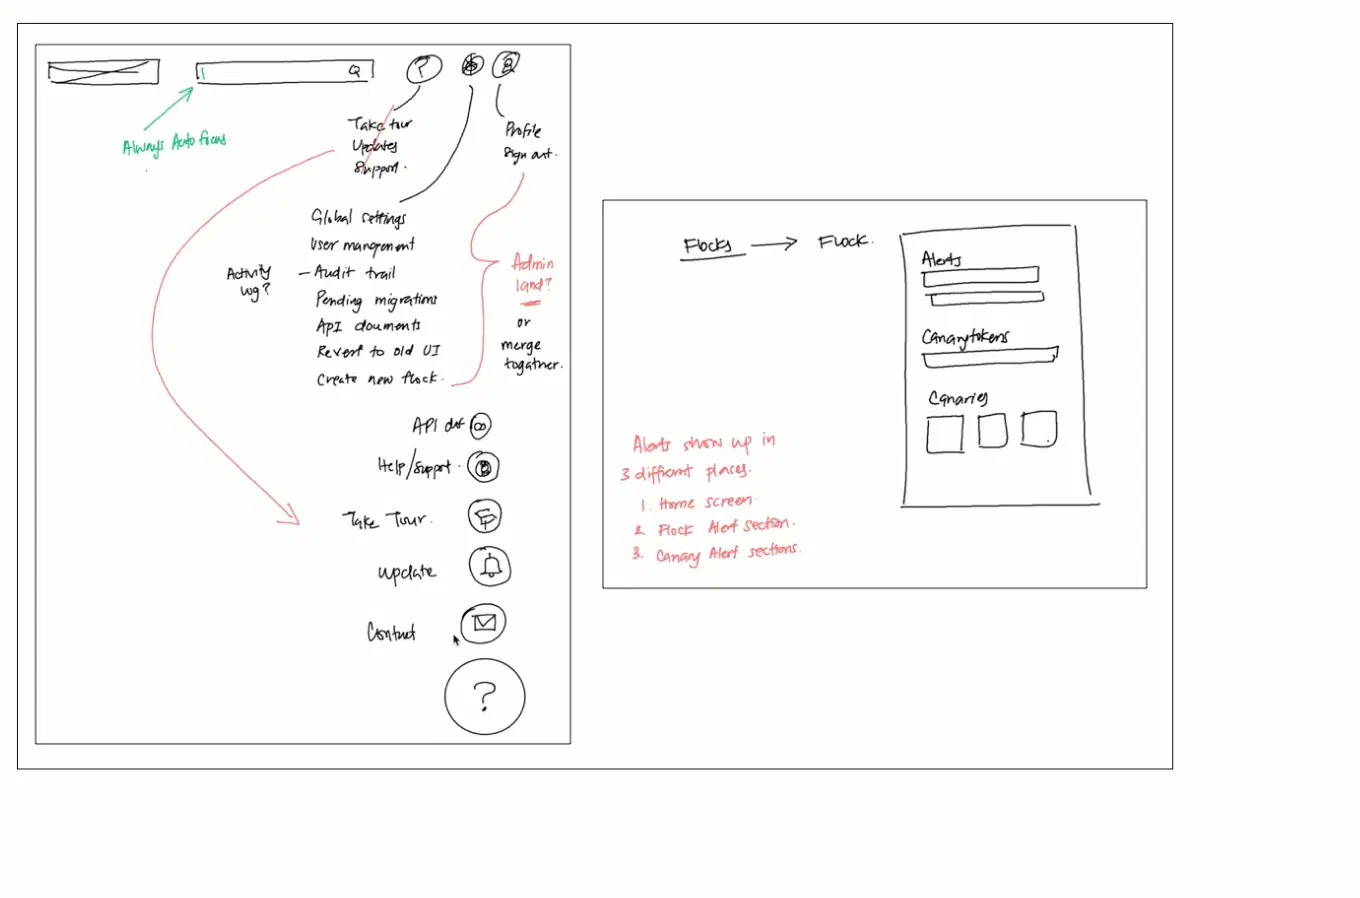 ?
Always Auto focus.
Take tour
Updates
Support.
Profile
Sign out.
Global settings
User mangement
Activity
log?
- Audit trail
Pending migrations
API documents
Revert to old UI
Create new flock.
Admin
land?
or
merge
togather.
API
Help/Support.
Take Tour.
update
Contact
?
Flocks → Flock.
Alerts
Canarytokens
Canaries
Alerts show up in
3 different places.
1. Home screen.
2. Flock Alert section.
3. Canary Alert sections.